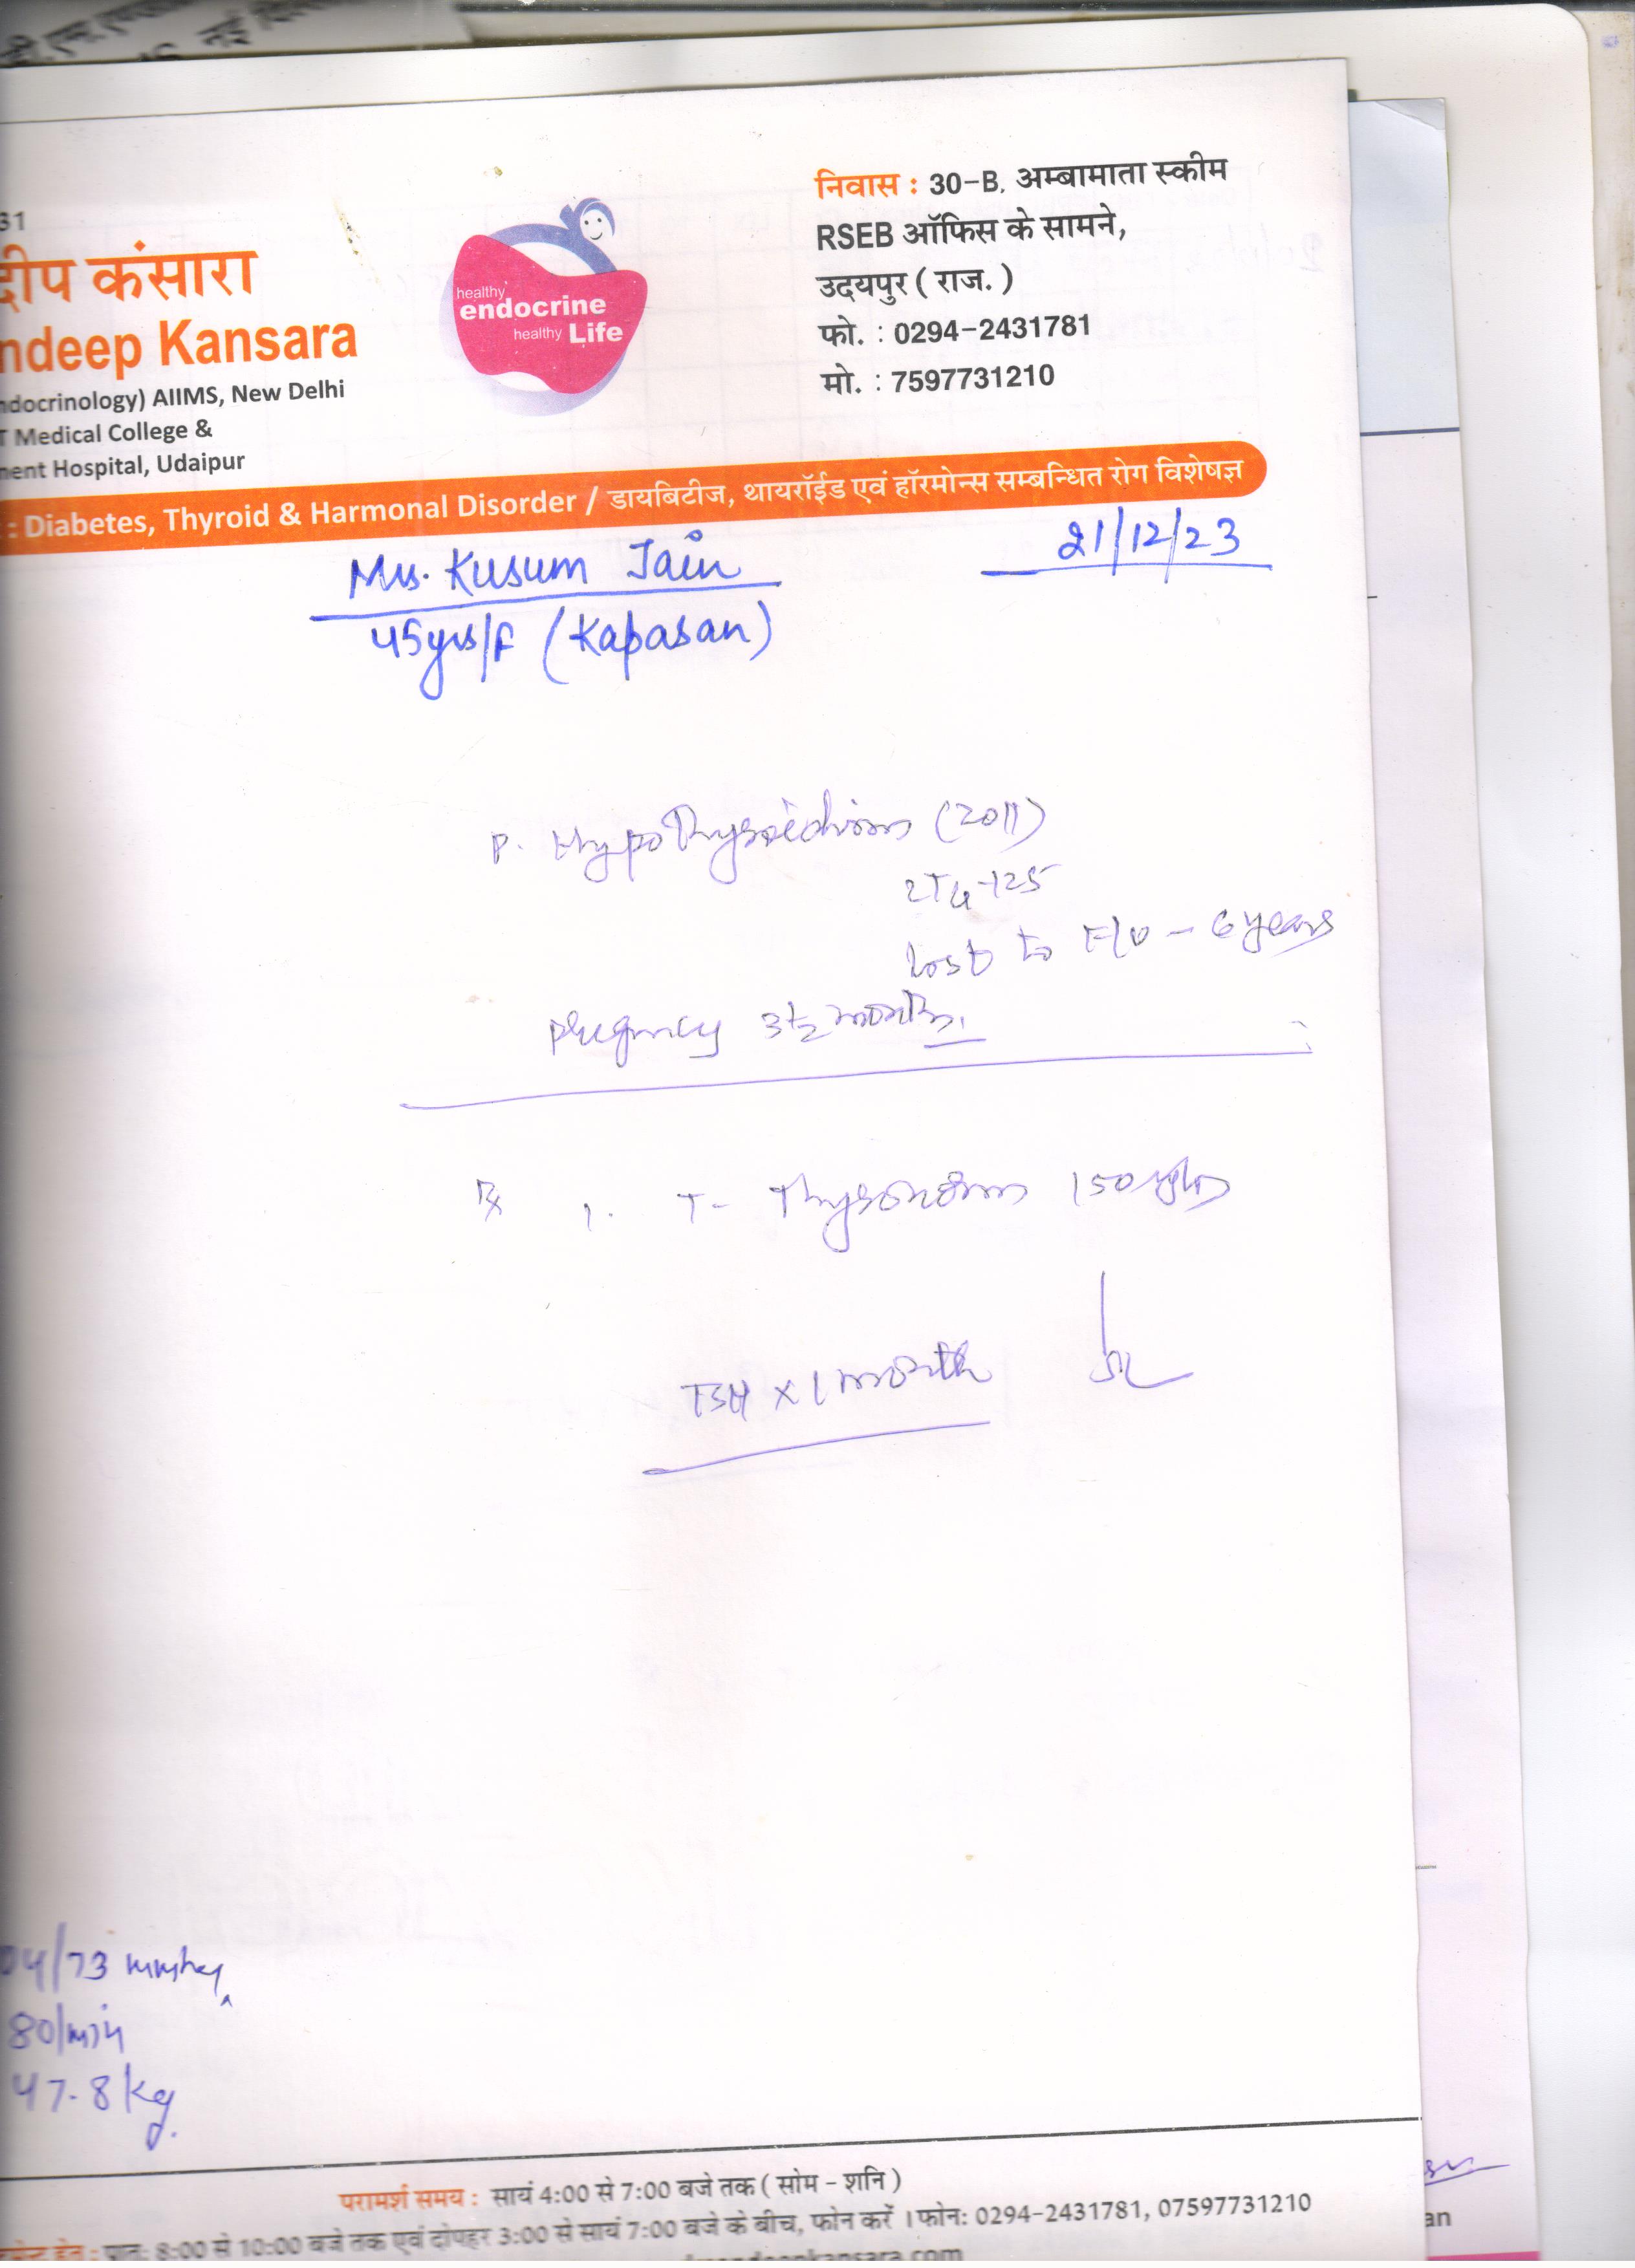 31
दीप कंसारा
ndeep Kansara
ndocrinology) AIIMS, New Delhi
T Medical College &
nent Hospital, Udaipur
healthy
endocrine
healthy Life
निवास : 30-B, अम्बामाता स्कीम
RSEB ऑफिस के सामने,
उदयपुर ( राज. )
फो. : 0294-2431781
मो. : 7597731210
: Diabetes, Thyroid & Harmonal Disorder / डायबिटीज, थायरॉईड एवं हॉरमोन्स सम्बन्धित रोग विशेषज्ञ
Mrs. Kusum Jain
21/12/23
45yrs/F (Kapasan)
P. Hypothyroidism (2011)
LT4-125
lost to F/U - 6 years
pregnancy 3½ months.
Rx 1. T- Thyronorm 150
TSH x 1 month
04/73 mmhg
80/min
47.8 kg
परामर्श समय : सायं 4:00 से 7:00 बजे तक ( सोम - शनि )
हेतु : प्रात: 8:00 से 10:00 बजे तक एवं दोपहर 3:00 से सायं 7:00 बजे के बीच, फोन करें । फोन: 0294-2431781, 07597731210
an